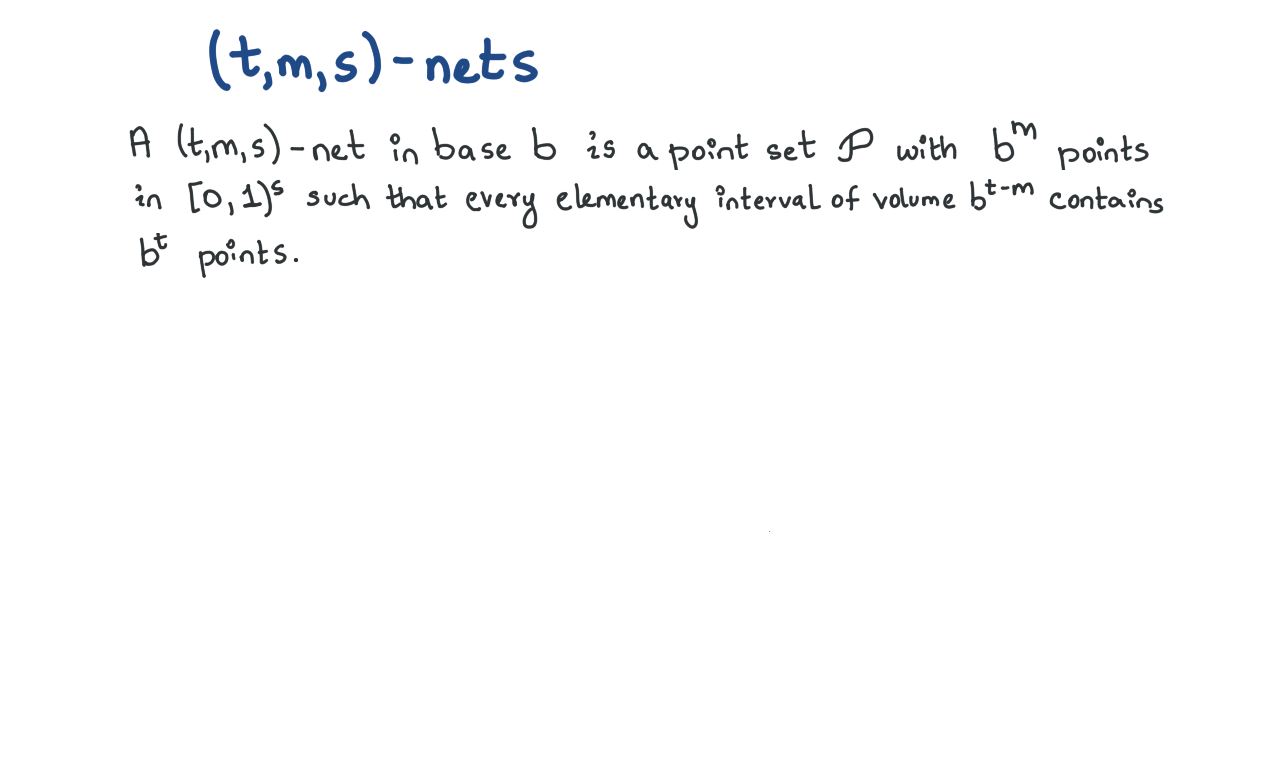 (t,m,s)-nets
A (t,m,s)-net in base b is a point set 𝒫 with b^m points
in [0,1)^s such that every elementary interval of volume b^{t-m} contains
b^t points.